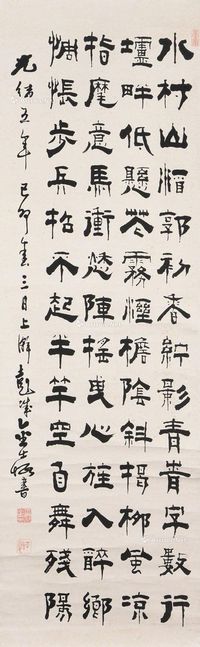 水村山郭初香影青青字數行
壚畔低懸花霧溼檐陰斜揭柳風涼
指麾意馬衝愁陣搖曳心旌入醉鄉
惆悵步兵招不起半竿空自舞殘陽
光緒五年己卯春三月上澣彭城書